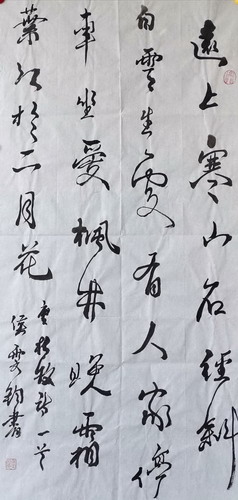 遠上寒山石徑斜
白雲生處有人家停
車坐愛楓林晚霜
葉紅於二月花
唐杜牧詩一首
侯書